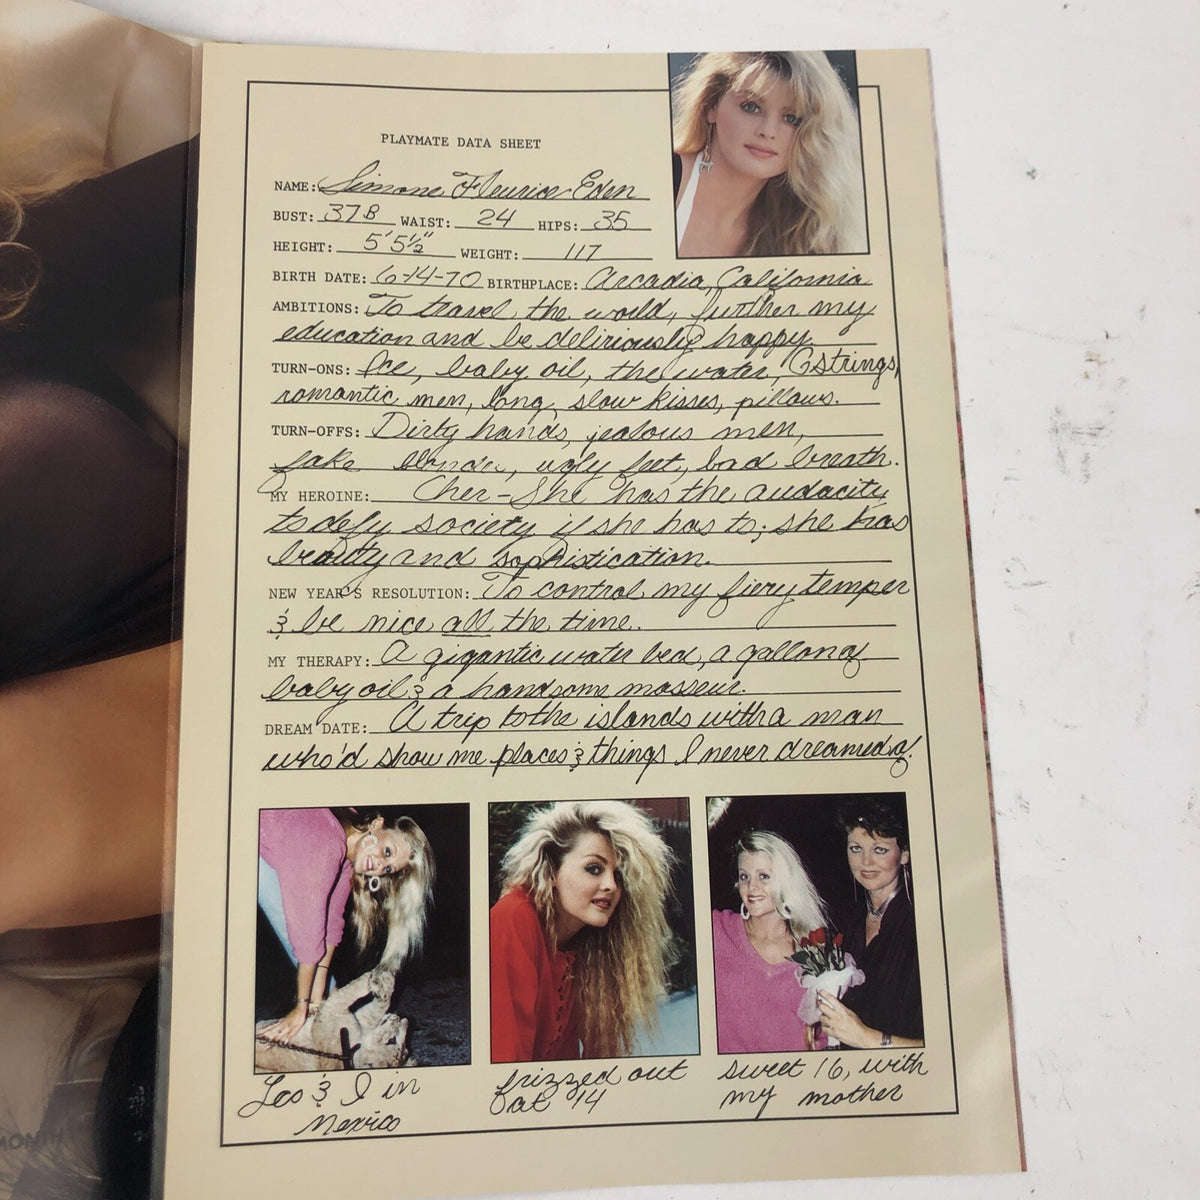 PLAYMATE DATA SHEET
NAME: Simone Fleurice Eden
BUST: 37B WAIST: 24 HIPS: 35
HEIGHT: 5'5½" WEIGHT: 117
BIRTH DATE: 6-14-70 BIRTHPLACE: Arcadia, California
AMBITIONS: To travel the world, further my
education and be deliriously happy.
TURN-ONS: Ice, baby oil, the water, G strings,
romantic men, long, slow kisses, pillows.
TURN-OFFS: Dirty hands, jealous men,
fake blondes, ugly feet, bad breath.
MY HEROINE: Cher-She has the audacity
to defy society if she has to; she has
beauty and sophistication.
NEW YEAR'S RESOLUTION: To control my fiery temper
& be nice all the time.
MY THERAPY: A gigantic water bed, a gallon of
baby oil & a handsome masseur.
DREAM DATE: A trip to the islands with a man
who'd show me places & things I never dreamed of!
Leo & I in
Mexico
frizzed out
at 14
sweet 16, with
my mother
MONTH